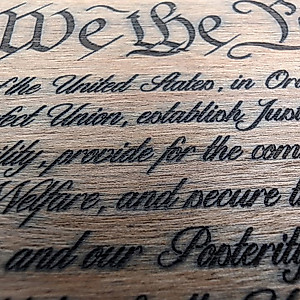 We the P
of the United States, in Or
fect Union, establish Just
ility, provide for the com
Welfare, and secure t
and our Posterity